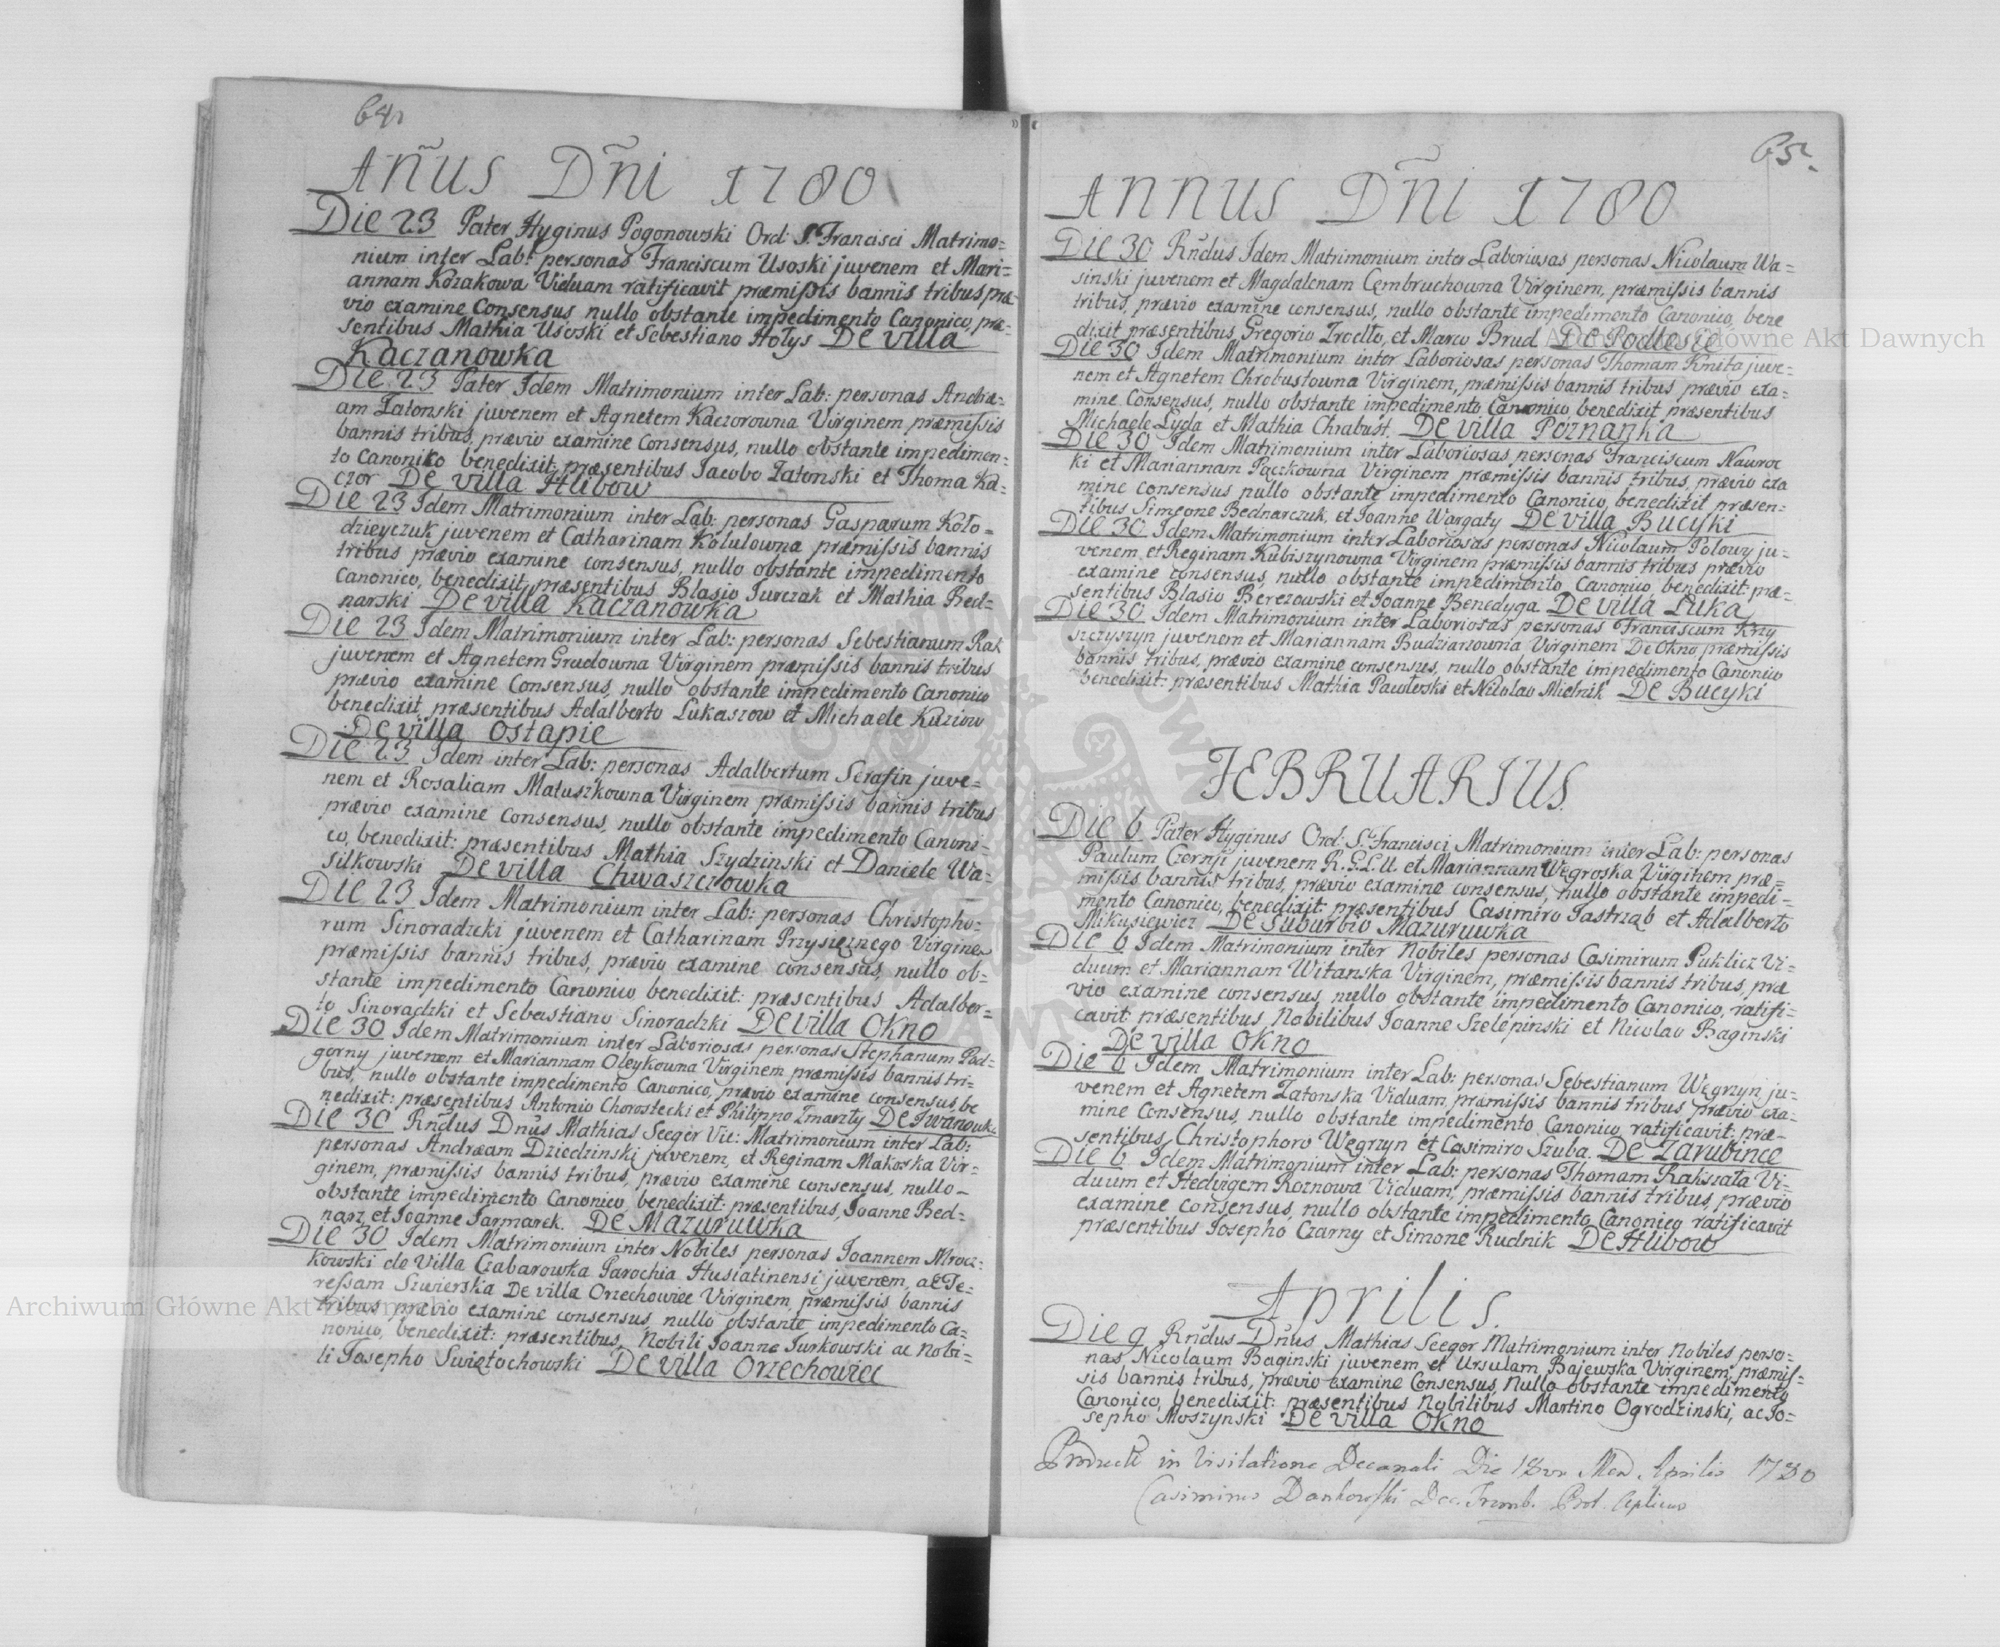 64.
Añus Dñi 1780
Die 23 Pater Hyginus Pogonowski Ord: S. Francisci Matrimo=
nium inter Lab: personas Franciscum Usoski juvenem et Mari=
annam Kozakowa Viduam ratificavit præmissis bannis tribus præ=
vio examine Consensus nullo obstante impedimento Canonico, præ=
sentibus Mathia Usoski et Sebestiano Hołys De villa
Kaczanowka
Die 23 Pater Idem Matrimonium inter Lab: personas Andræ=
am Zatonski juvenem et Agnetem Kaczorowna Virginem præmissis
bannis tribus, prævio examine Consensus, nullo obstante impedimen=
to Canoniko benedixit: præsentibus Jacobo Zatonski et Thoma Ka=
czor De villa Hlibow
Die 23 Idem Matrimonium inter Lab: personas Gasparum Koło=
dzieyczuk juvenem et Catharinam Kolulowna præmissis bannis
tribus prævio examine consensus, nullo obstante impedimento
Canonico, benedixit: præsentibus Blasio Jurczak et Mathia Bed=
narski De villa Kaczanowka
Die 23 Idem Matrimonium inter Lab: personas Sebestianum Rak
juvenem et Agnetem Grudowna Virginem præmissis bannis tribus
prævio examine Consensus, nullo obstante impedimento Canonico
benedixit præsentibus Adalberto Lukaszow et Michaele Kuziow
De villa Ostapie
Die 23 Idem inter Lab: personas Adalbertum Serafin juve=
nem et Rosaliam Matuszkowna Virginem præmissis bannis tribus
prævio examine Consensus, nullo obstante impedimento Canoni=
co, benedixit: præsentibus Mathia Szydzinski et Daniele Wa=
silkowski De villa Chwaszczowka
Die 23 Idem Matrimonium inter Lab: personas Christopho=
rum Sinoradzki juvenem et Catharinam Przysięznego Virginem
præmissis bannis tribus, prævio examine consensus, nullo ob=
stante impedimento Canonico, benedixit: præsentibus Adalber=
to Sinoradzki et Sebestiano Sinoradzki De villa Okno
Die 30 Idem Matrimonium inter Laboriosas personas Stephanum Pod=
gorny juvenem et Mariannam Oleykowna Virginem præmissis bannis tri=
bus, nullo obstante impedimento Canonico, prævio examine consensus be
nedixit: præsentibus Antonio Chorostecki et Philippo Zmarzły De Iwanowka
Die 30 Rñdus Dñus Mathias Seeger Vic: Matrimonium inter Lab:
personas Andræam Dziedzinski juvenem, et Reginam Makoska Vir=
ginem, præmissis bannis tribus, prævio examine consensus, nullo
obstante impedimento Canonico, benedixit: præsentibus, Joanne Bed=
narz, et Joanne Jarmarek. De Mazuruwka
Die 30 Idem Matrimonium inter Nobiles personas Joannem Mrocz=
kowski de Villa Czabarowka Parochia Husiatinensi juvenem, ac Te=
ressam Szwierska De villa Orzechowiec Virginem, præmissis bannis
tribus prævio examine consensus, nullo obstante impedimento Ca=
nonico, benedixit: præsentibus, Nobili Joanne Jurkowski ac Nobi=
li Josepho Swiętochowski De villa Orzechowiec
65.
Annus Dñi 1780
Die 30 Rñdus Idem Matrimonium inter Laboriosas personas Nicolaum Wa=
sinski juvenem et Magdalenam Cembruchowna Virginem, præmissis bannis
tribus, prævio examine consensus, nullo obstante impedimento Canonico, bene
dixit præsentibus, Gregorio Trociło, et Marco Brud De Podlesie
Die 30 Idem Matrimonium inter Laboriosas personas Thomam Kmita juve=
nem et Agnetem Chrobustowna Virginem, præmissis bannis tribus prævio exa=
mine Consensus, nullo obstante impedimento Canonico, benedixit præsentibus
Michaele Łyda et Mathia Chrabust. De villa Poznanka
Die 30 Idem Matrimonium inter Laboriosas personas Franciscum Nawroc
ki et Mariannam Pączkowna Virginem præmissis bannis tribus, prævio exa
mine consensus nullo obstante impedimento Canonico, benedixit præsen=
tibus Simeone Bednarczuk, et Joanne Wargaty De villa Bucyki
Die 30 Idem Matrimonium inter Laboriosas personas Nicolaum Polowy ju=
venem et Reginam Kubiszynowna Virginem præmissis bannis tribus prævio
examine consensus, nullo obstante impedimento Canonico, benedixit: præ=
sentibus Blasio Berezowski et Joanne Benedyga De villa Luka
Die 30 Idem Matrimonium inter Laboriosas personas Franciscum Krzy
szczyszyn juvenem et Mariannam Budzianowna Virginem De Okno præmissis
bannis tribus, prævio examine consensus, nullo obstante impedimento Canonico
benedixit: præsentibus Mathia Pawłoski et Nicolao Mielnik De Bucyki
FEBRUARIUS.
Die 6 Pater Hyginus Ord: S. Francisci Matrimonium inter Lab: personas
Paulum Czernij juvenem R.G.L.U. et Mariannam Węgroska Virginem præ=
missis bannis tribus, prævio examine consensus, nullo obstante impedi=
mento Canonico, benedixit: præsentibus Casimiro Jastrząb et Adalberto
Mikusiewicz De Suburbio Mazuruwka
Die 6 Idem Matrimonium inter Nobiles personas Casimirum Puklicz Vi=
duum et Mariannam Witanska Virginem, præmissis bannis tribus, præ
vio examine consensus, nullo obstante impedimento Canonico, ratifi=
cavit, præsentibus Nobilibus Joanne Szelepinski et Nicolao Baginski
De villa Okno
Die 6 Idem Matrimonium inter Lab: personas Sebestianum Węgrzyn ju=
venem et Agnetem Zatonska Viduam, præmissis bannis tribus prævio exa=
mine Consensus, nullo obstante impedimento Canonico, ratificavit: præ=
sentibus Christophoro Węgrzyn et Casimiro Szuba. De Zarubince
Die 6 Idem Matrimonium inter Lab: personas Thomam Rakszała Vi=
duum et Hedvigem Roznowa Viduam, præmissis bannis tribus, prævio
examine consensus, nullo obstante impedimento Canonico ratificavit
præsentibus Josepho Czarny et Simone Rudnik De Hlibow
Aprilis.
Die 9 Rñdus Dñus Mathias Seeger Matrimonium inter Nobiles perso=
nas Nicolaum Baginski juvenem et Ursulam Bajewska Virginem, præmis=
sis bannis tribus, prævio examine Consensus, Nullo obstante impedimento
Canonico, benedixit: præsentibus Nobilibus Martino Ogrodzinski, ac Jo=
sepho Moszynski De villa Okno
in Visitatione Decanali Die 18va Aprilis 1780
Casimirus Dankowski Dec. Tremb.
Archiwum Główne Akt Dawnych
Archiwum Główne Akt Dawnych